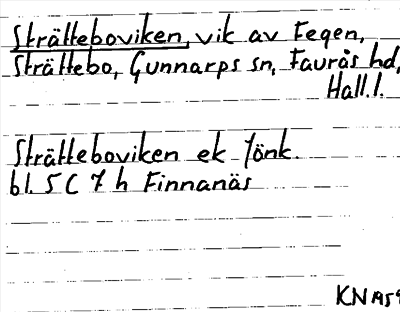 Strätteboviken, vik av Fegen,
Strättebo, Gunnarps sn, Faurås hd,
Hall.l.
Strätteboviken ek Jönk.
bl. 5 C 7 h Finnanäs